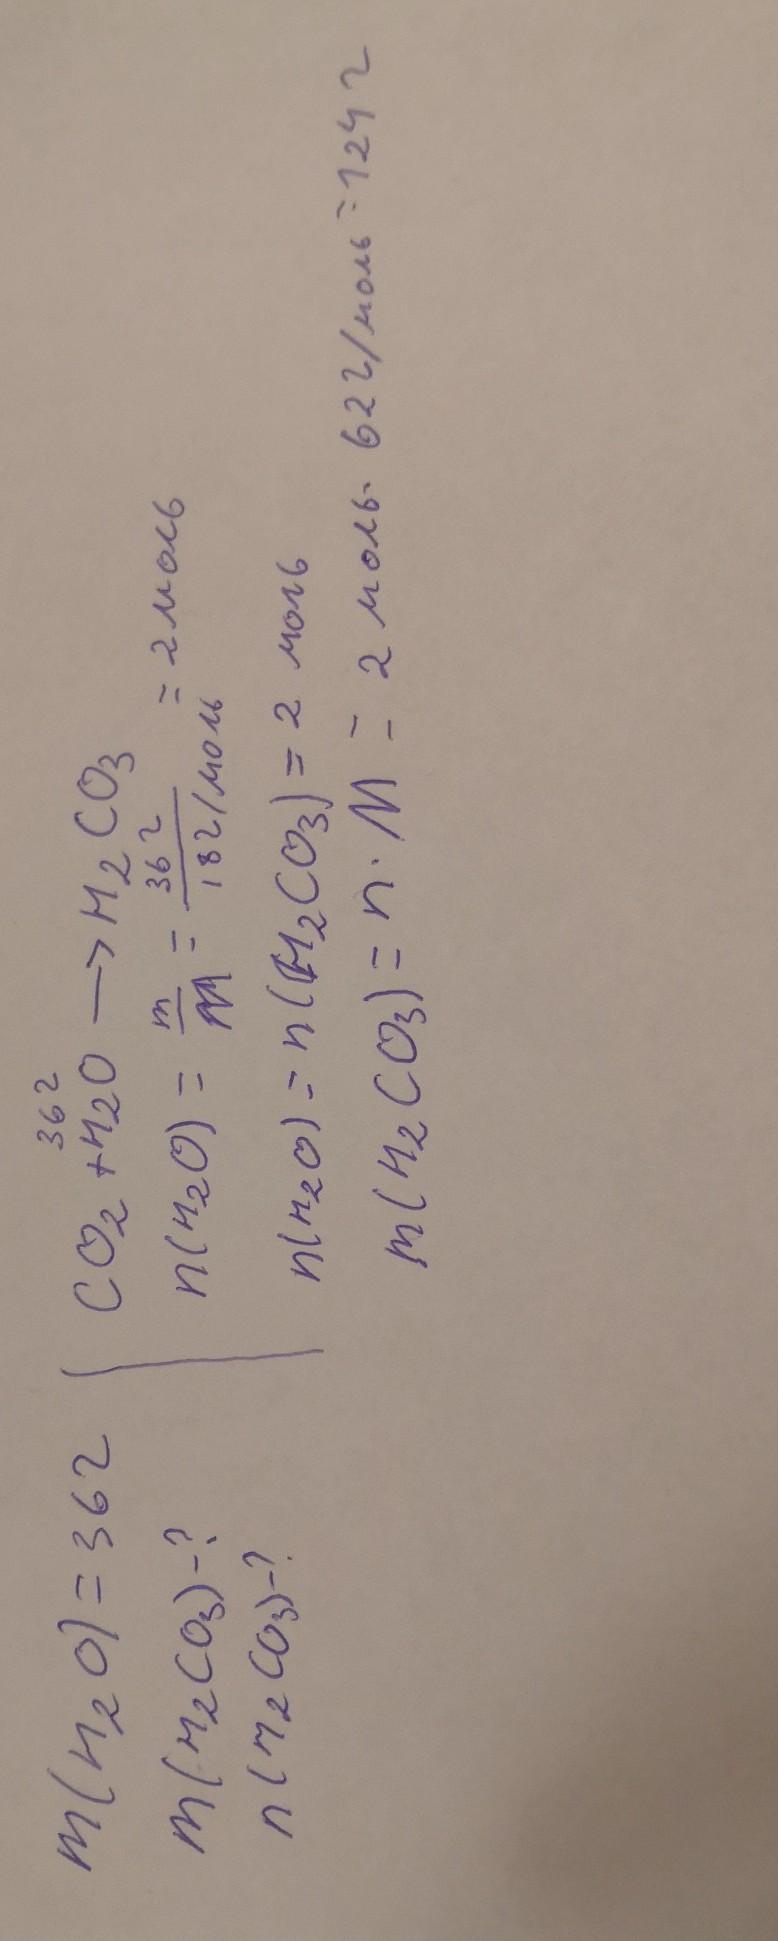 m(H2O)=36г
m(H2CO3)-?
n(H2CO3)-?
36г
CO2+H2O → H2CO3
n(H2O) = m/M = 36г/18г/мол = 2моль
n(H2O)=n(H2CO3)=2 моль
m(H2CO3)=n·M = 2 моль·62г/моль=124г